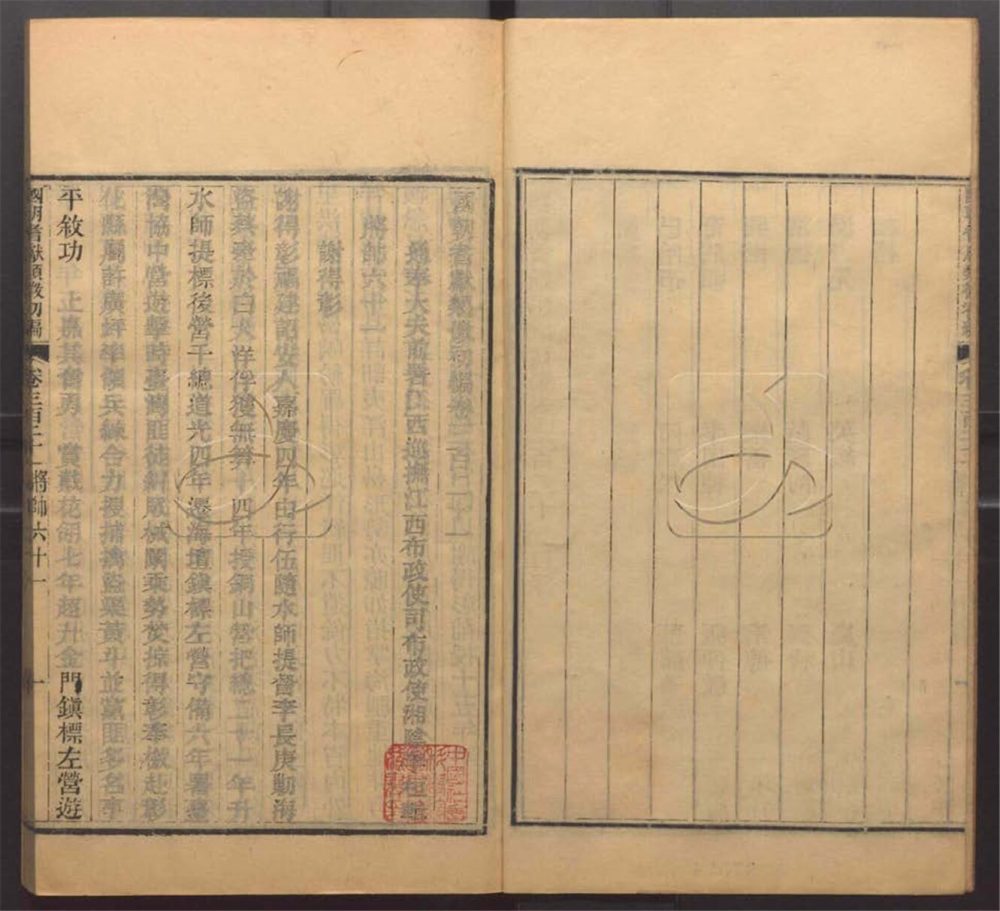 國朝耆獻類徵初編卷三百二十一
通奉大夫前署江西巡撫江西布政使司布政使湘陰李桓輯
將帥六十一
謝得彰
謝得彰福建詔安人嘉慶四年由行伍隨水師提督李長庚勦海
盜蔡牽於白犬洋俘獲無算十四年授銅山營把總二十一年升
水師提標後營千總道光四年遷海壇鎮標左營守備六年署臺
灣協中營遊擊時臺灣匪徒糾眾械鬭乘勢焚掠得彰奉檄赴彰
化縣屬許厝埔率領兵練合力搜捕擒盜渠黃斗並黨匪多名事
平敘功 上嘉其奮勇 賞戴花翎七年超升金門鎮標左營遊
國朝耆獻類徵初編 卷三百二十一 將帥六十一 一